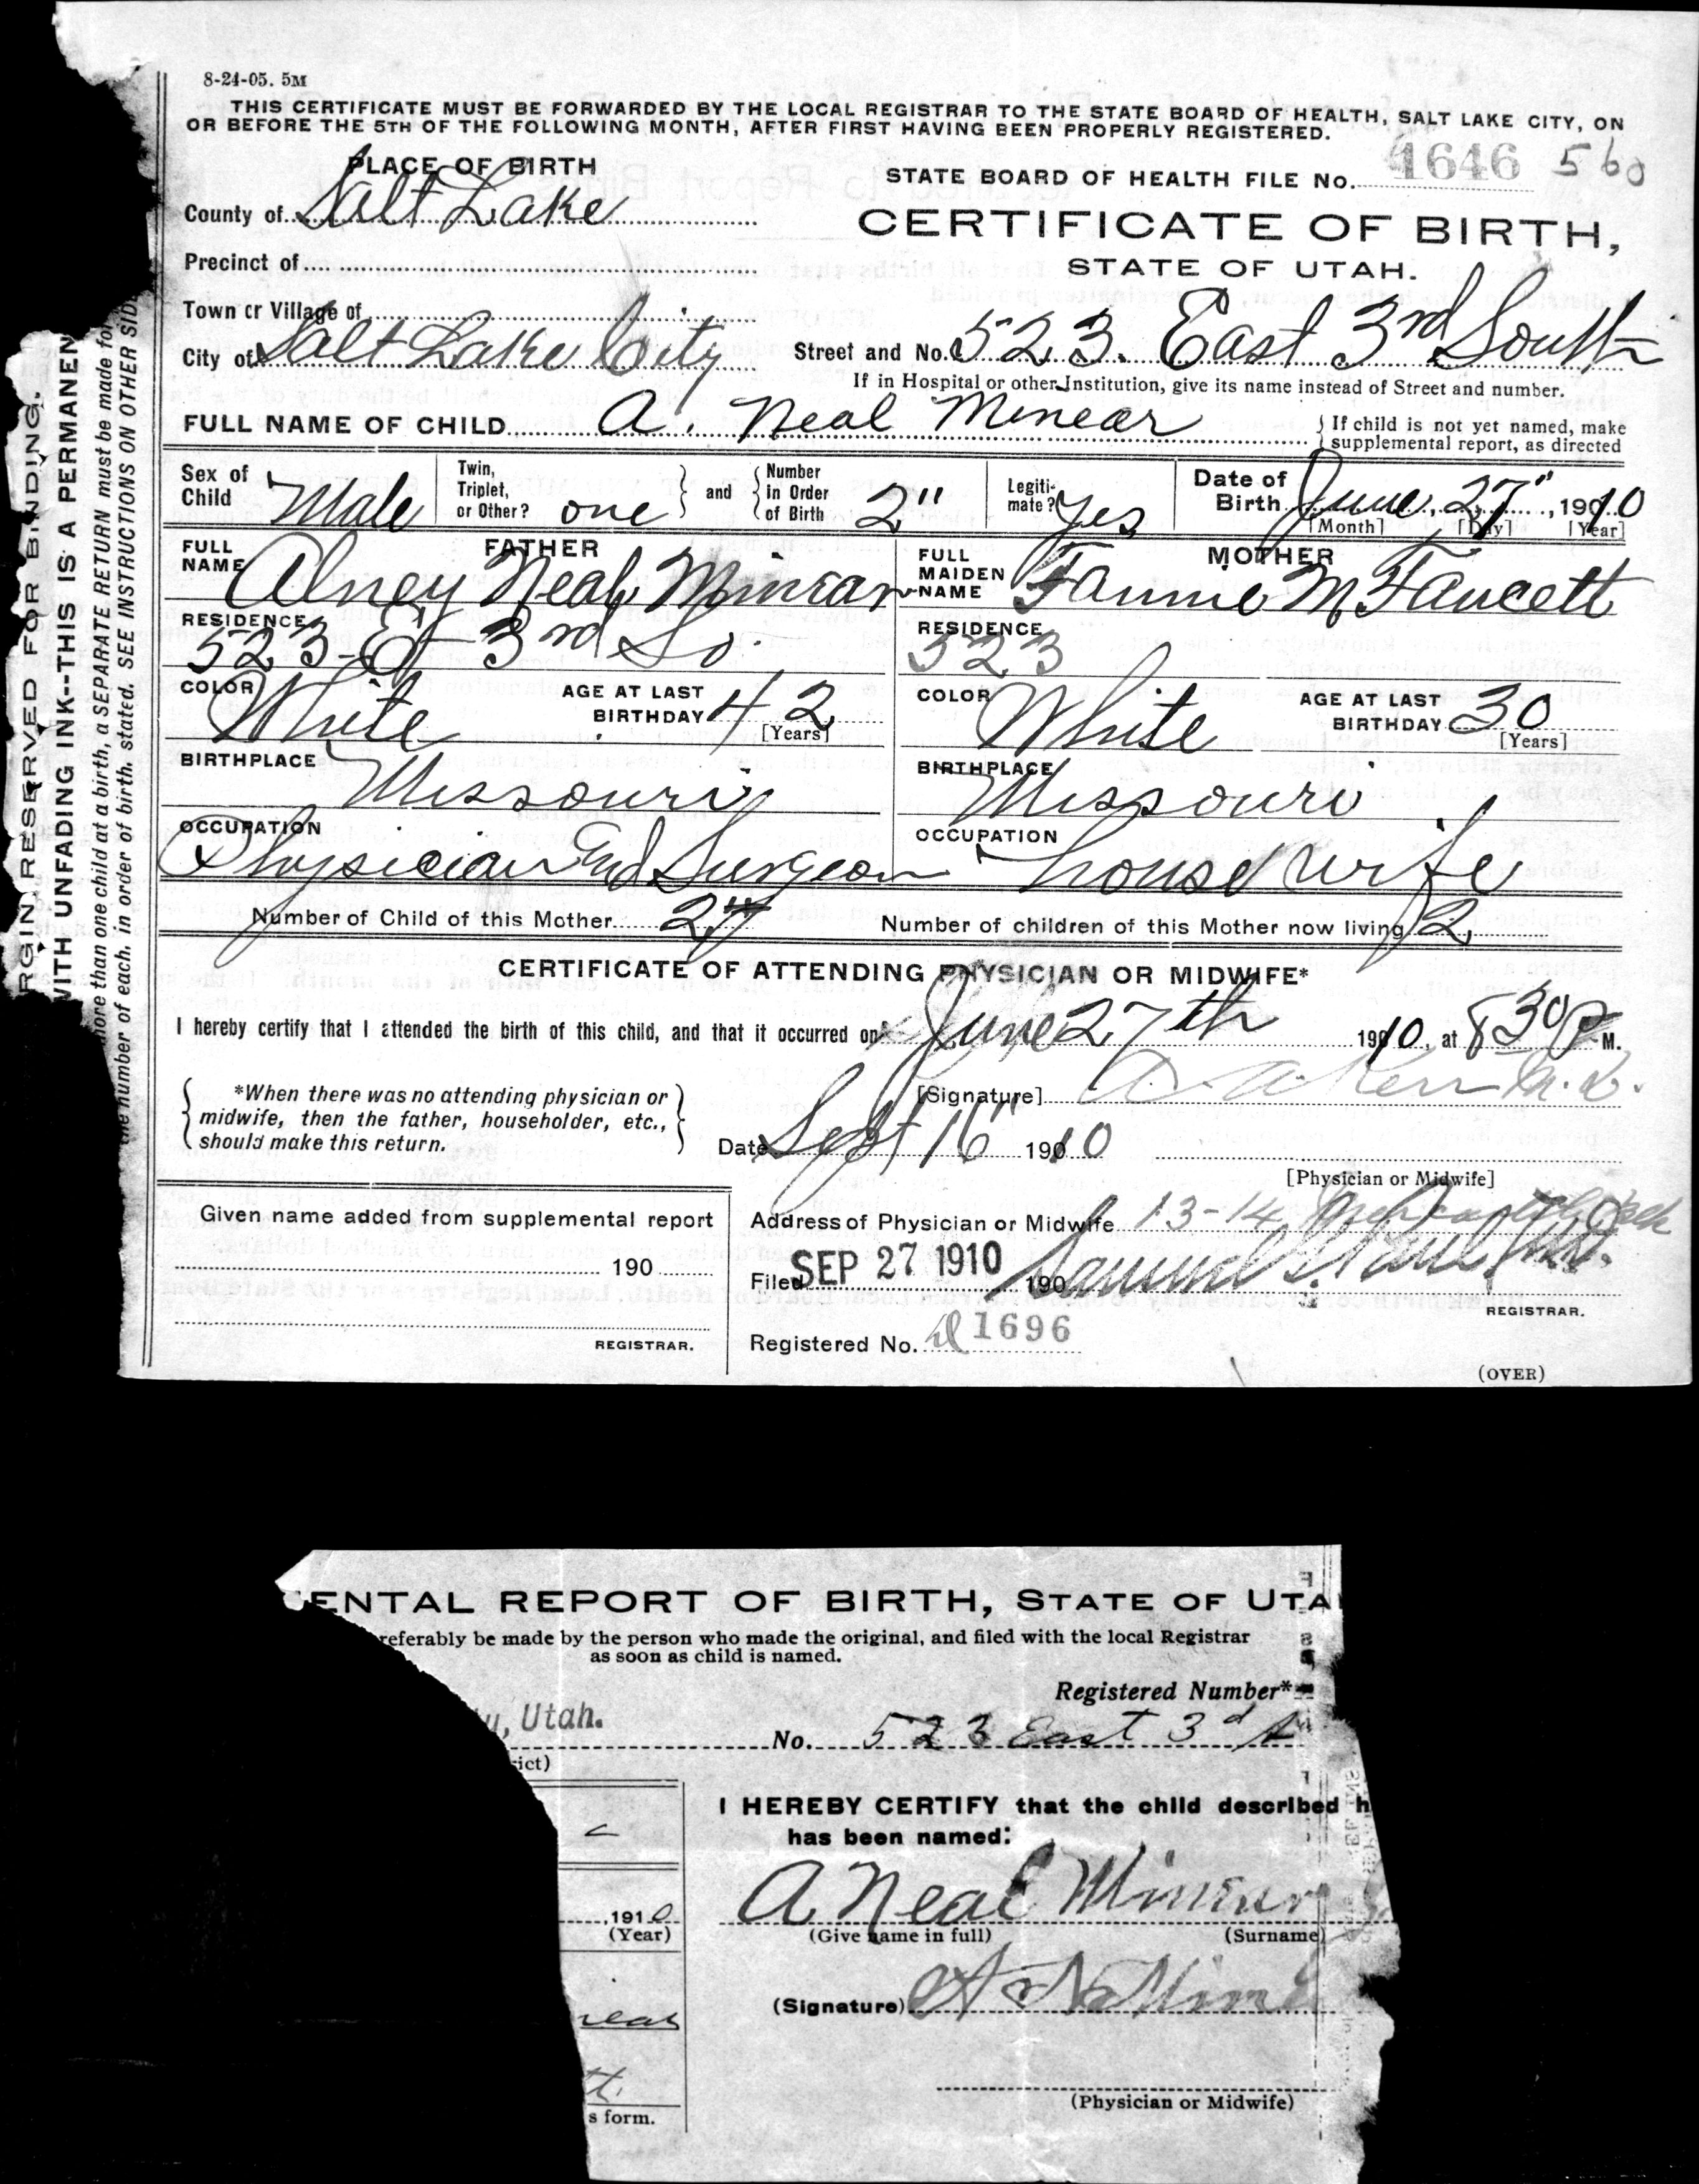 8-24-05. 5M
THIS CERTIFICATE MUST BE FORWARDED BY THE LOCAL REGISTRAR TO THE STATE BOARD OF HEALTH, SALT LAKE CITY, ON
OR BEFORE THE 5TH OF THE FOLLOWING MONTH, AFTER FIRST HAVING BEEN PROPERLY REGISTERED.
PLACE OF BIRTH
STATE BOARD OF HEALTH FILE No. 1646 560
County of Salt Lake
CERTIFICATE OF BIRTH,
Precinct of
STATE OF UTAH.
Town or Village of
City of Salt Lake City Street and No. 523. East 3rd South
If in Hospital or other Institution, give its name instead of Street and number.
FULL NAME OF CHILD A. Neal Minear
If child is not yet named, make
supplemental report, as directed
Sex of Child Male Twin, Triplet, or Other? one and Number in Order of Birth 2" Legitimate? Yes Date of Birth June 27" 1910
[Month] [Day] [Year]
FATHER MOTHER
FULL NAME Alney Neal Minear FULL MAIDEN NAME Fannie M Faucett
RESIDENCE 523 Et 3rd So. RESIDENCE 523
COLOR White AGE AT LAST BIRTHDAY 42 [Years] COLOR White AGE AT LAST BIRTHDAY 30 [Years]
BIRTHPLACE Missouri BIRTHPLACE Missouri
OCCUPATION Physician and Surgeon OCCUPATION housewife
Number of Child of this Mother 2 Number of children of this Mother now living 2
CERTIFICATE OF ATTENDING PHYSICIAN OR MIDWIFE*
I hereby certify that I attended the birth of this child, and that it occurred on June 27th 1910, at 8 30 P. M.
*When there was no attending physician or
midwife, then the father, householder, etc.,
should make this return.
[Signature] Kerr M.D.
Date Sept 16" 1910
[Physician or Midwife]
Given name added from supplemental report
190
REGISTRAR.
Address of Physician or Midwife 13-14
Filed SEP 27 1910 190 Samuel G. Paul M.D.
REGISTRAR.
Registered No. 1696
(OVER)
RGIN RESERVED FOR BINDING.
WITH UNFADING INK--THIS IS A PERMANEN
more than one child at a birth, a SEPARATE RETURN must be made for
the number of each, in order of birth, stated. SEE INSTRUCTIONS ON OTHER SIDE
ENTAL REPORT OF BIRTH, STATE OF UTA
referably be made by the person who made the original, and filed with the local Registrar
as soon as child is named.
Registered Number*
y, Utah.
No. 523 East 3d
ict)
I HEREBY CERTIFY that the child described h
has been named:
A Neal Minear
(Give name in full) (Surname)
,1910
(Year)
(Signature) A N Mine
near
tt.
s form.
(Physician or Midwife)